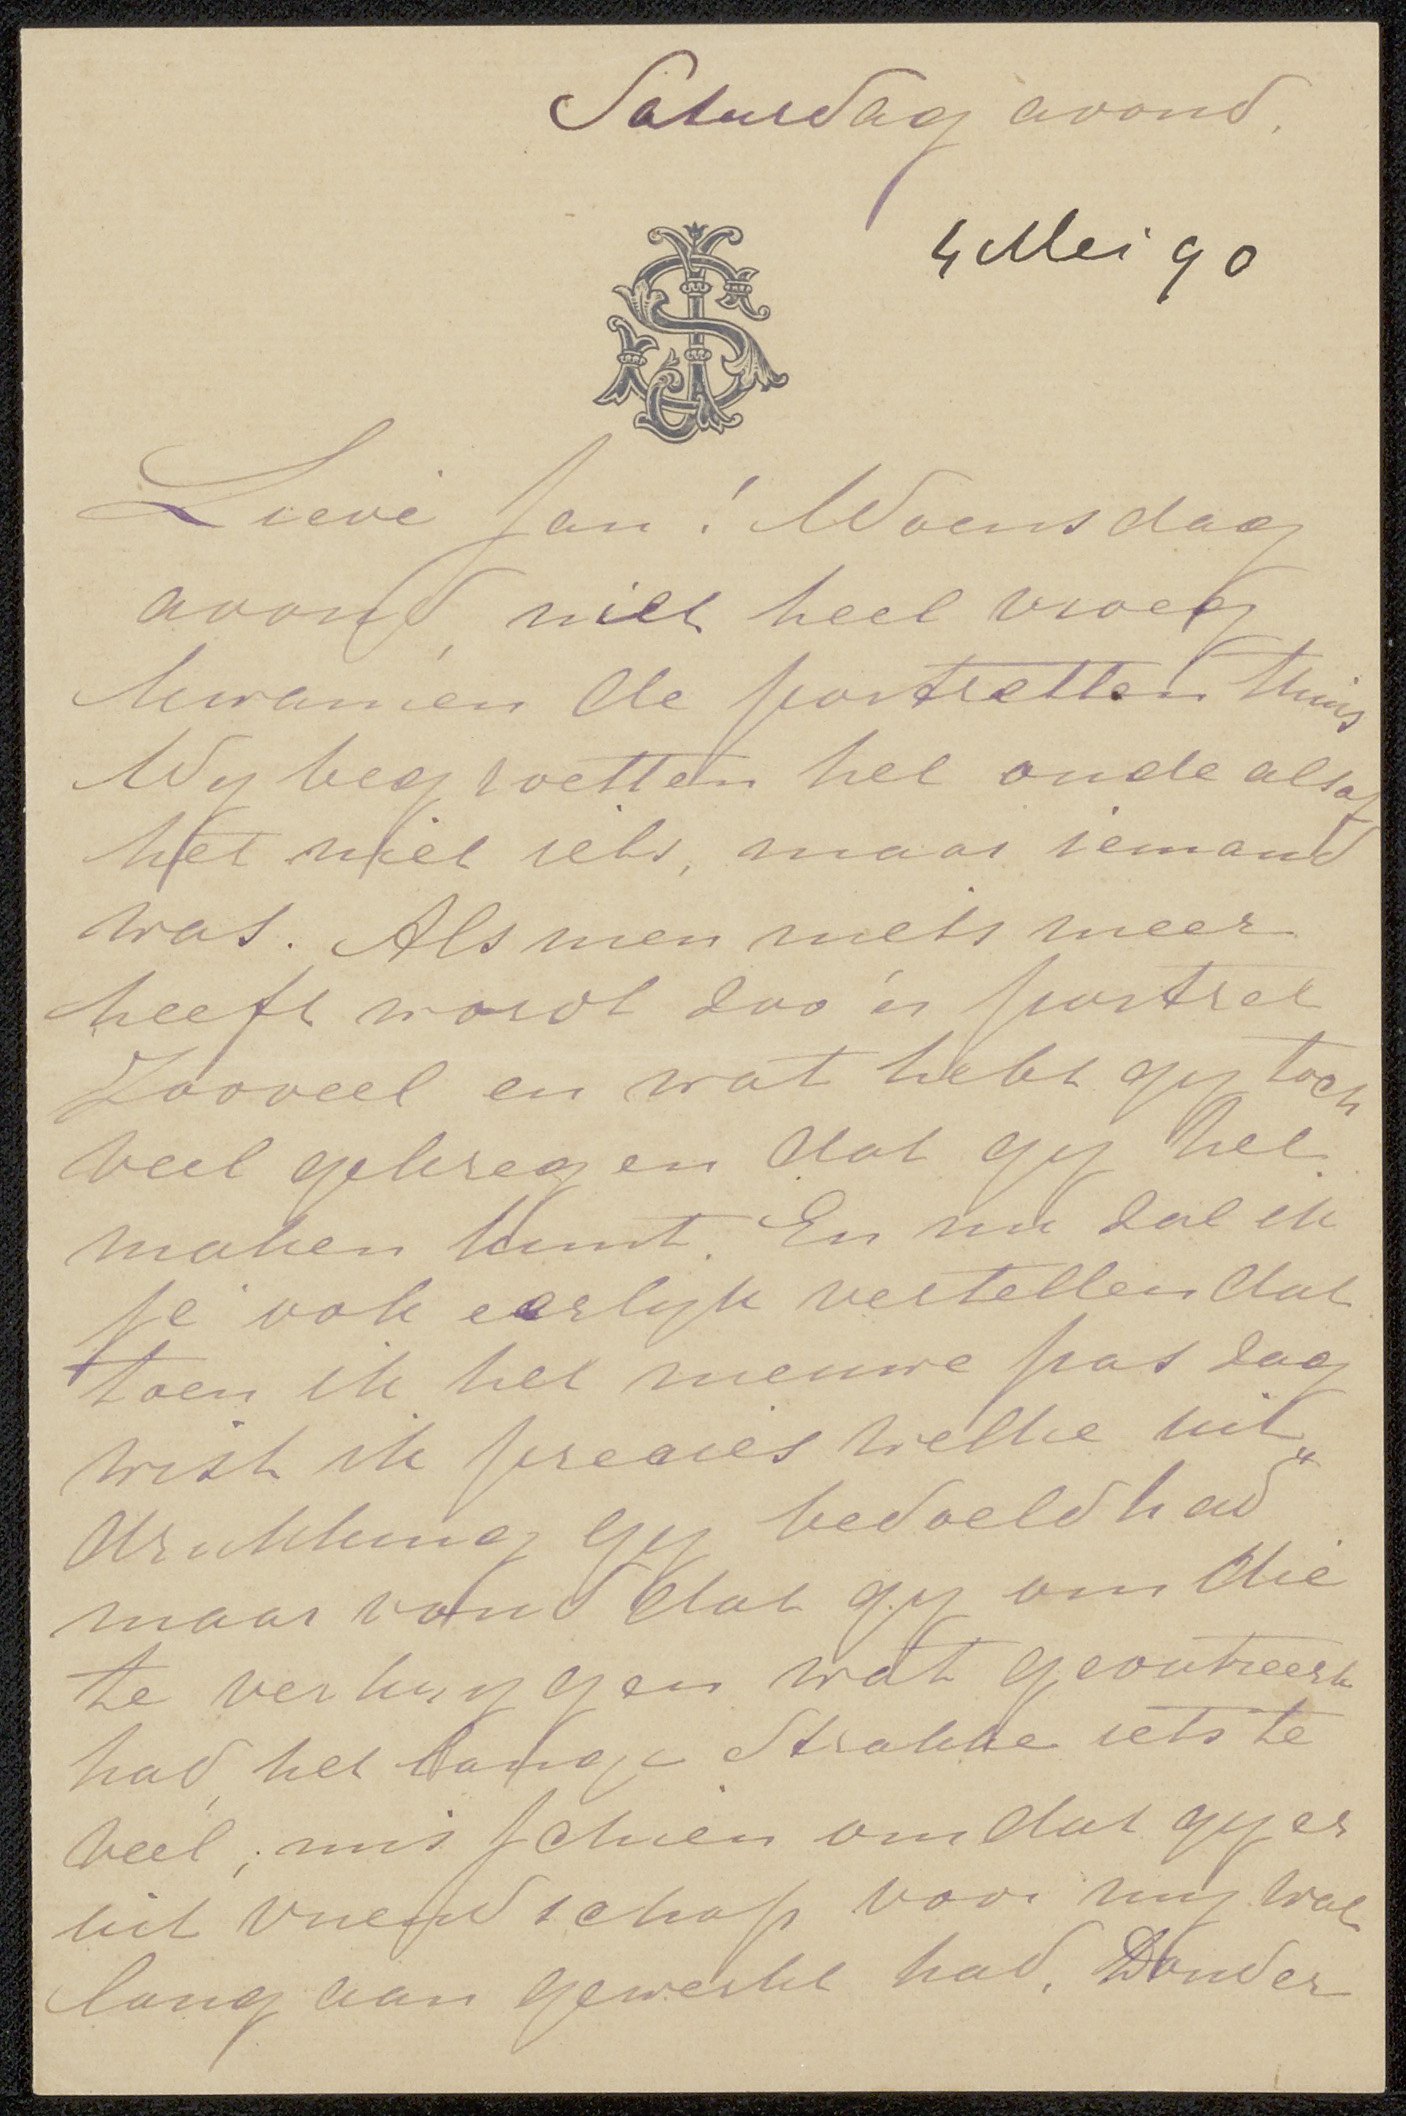 Saturdag avond.
4 Mei 90
Lieve Jan! Woensdag
avond, niet heel vroeg
kwamen de portretten thuis
Wy begroetten het oude alsof
het niet iets, maar iemand
was. Als men niets meer
heeft wordt zoo 'n portret
Zooveel en wat hebt gy toch
veel gekregen dat gy het
maken kunt. En nu zal ik
je ook eerlyk vertellen dat
toen ik het nieuwe pas zag
wist ik precies welke uit„
drukking gy bedoeld had
maar vond dat gy om die
te verkrygen wat geoutreerd
had, het lange strakke iets te
veel; misschien omdat gy er
uit vriendschap voor my wat
lang aan gewerkt had. Donder